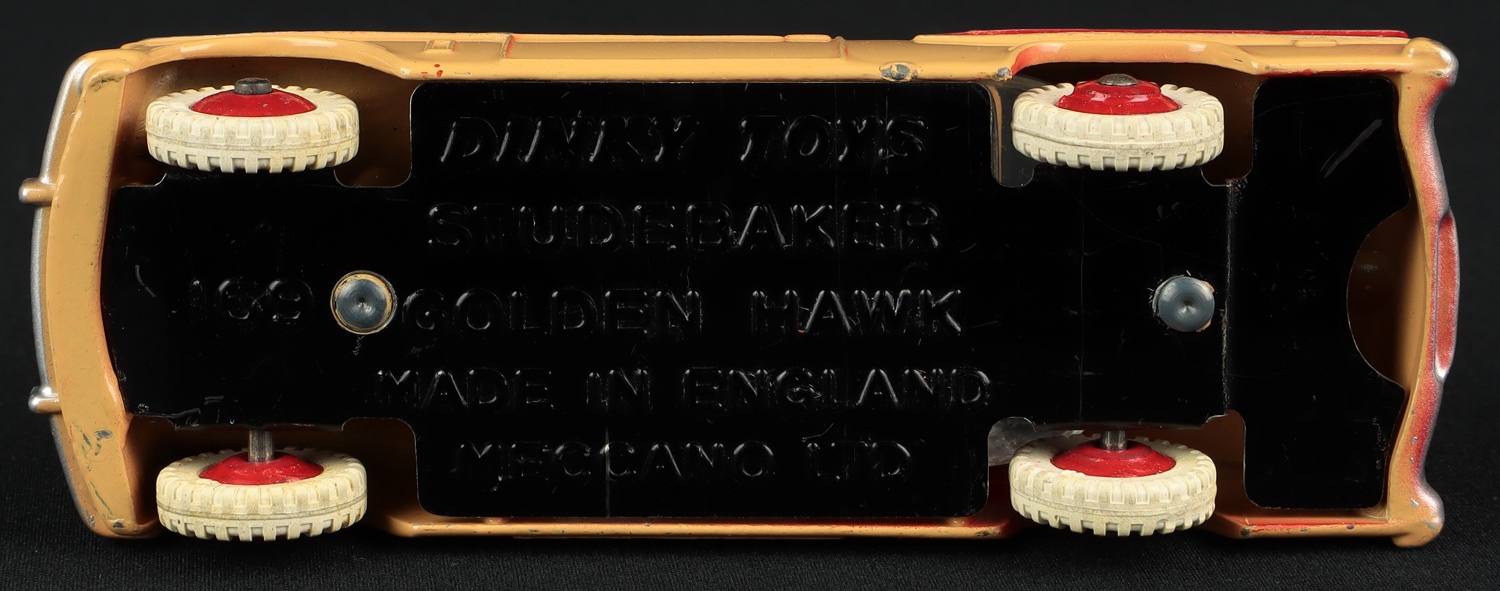 DINKY TOYS
STUDEBAKER
169 GOLDEN HAWK
MADE IN ENGLAND
MECCANO LTD